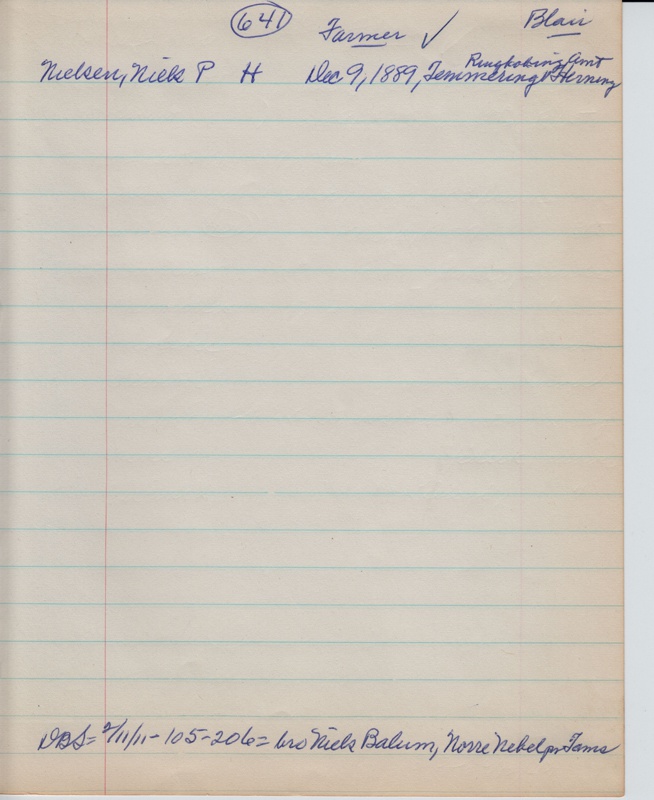 641 Farmer ✓ Blair
Ringkobing Amt
Nielsen, Niels P H Dec 9, 1889, Temmering Herning
DBS= 2/11/11-105-206= bro Niels Balum, Norre Nebel pr Tams